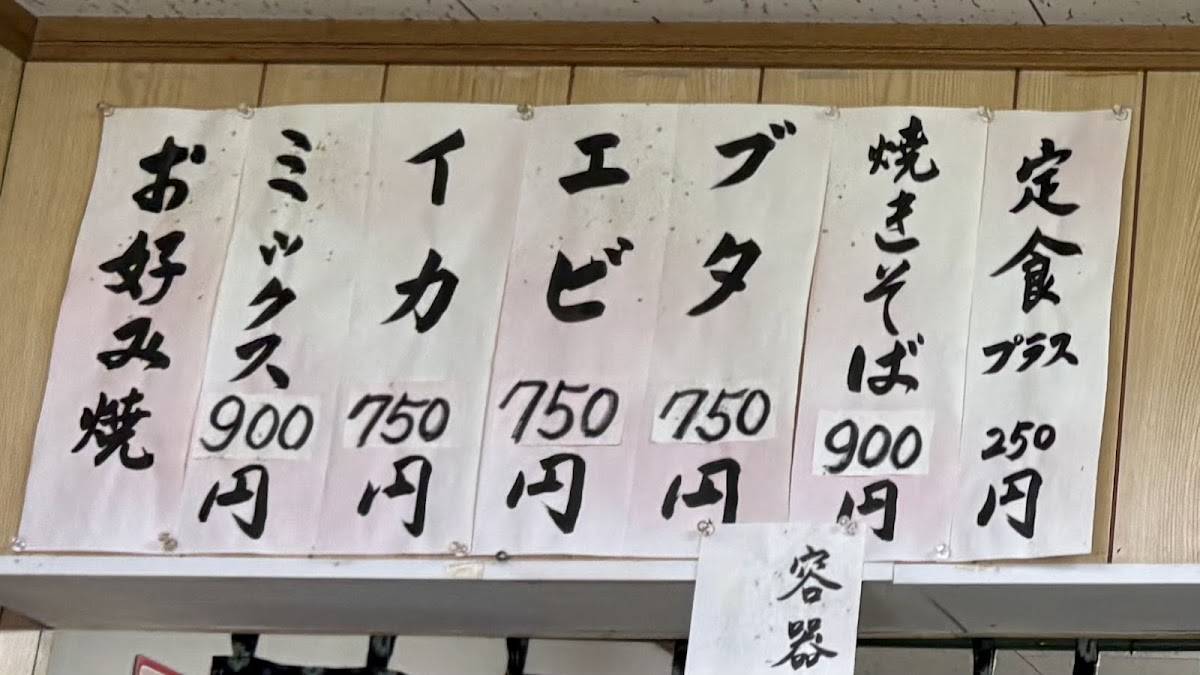 お好み焼
ミックス900円
イカ750円
エビ750円
ブタ750円
焼きそば900円
定食プラス250円
容器